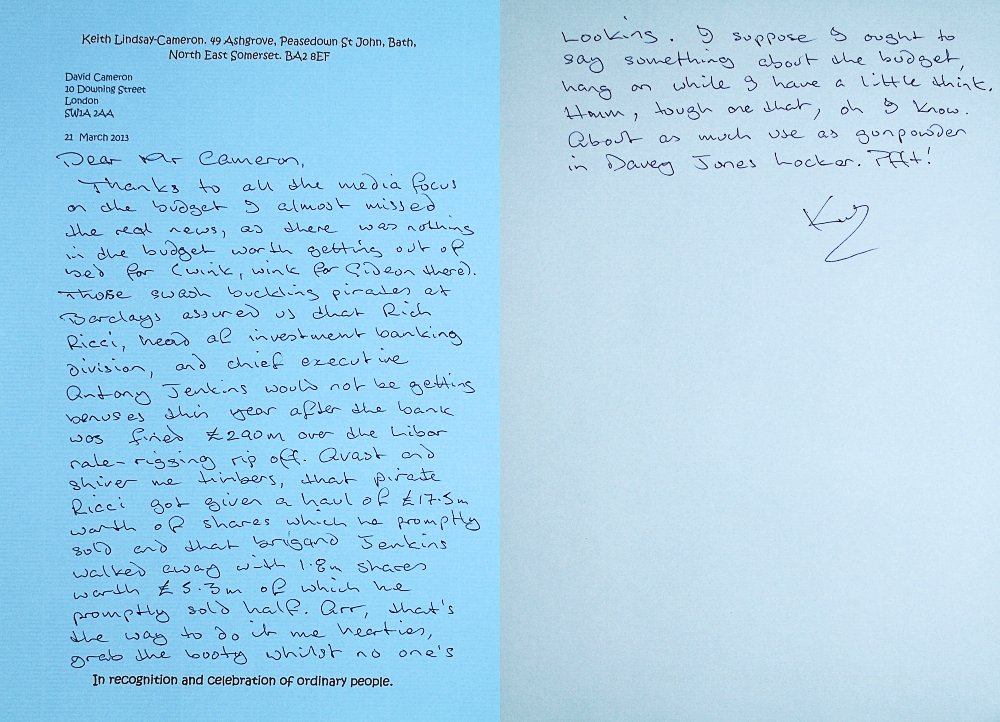 Keith Lindsay-Cameron. 49 Ashgrove, Peasedown St John, Bath,
North East Somerset. BA2 8EF
David Cameron
10 Downing Street
London
SW1A 2AA
21 March 2013
Dear Mr Cameron,
Thanks to all the media focus
on the budget I almost missed
the real news, as there was nothing
in the budget worth getting out of
bed for (wink, wink for Gideon there).
Those swash buckling pirates at
Barclays assured us that Rich
Ricci, head of investment banking
division, and chief executive
Antony Jenkins would not be getting
bonuses this year after the bank
was fined £290m over the Libor
rate-rigging rip off. Avast and
shiver me timbers, that pirate
Ricci got given a haul of £17.5m
worth of shares which he promptly
sold and that brigand Jenkins
walked away with 1.8m shares
worth £5.3m of which he
promptly sold half. Arr, that's
the way to do it me hearties,
grab the booty whilst no one's
In recognition and celebration of ordinary people.
Looking. I suppose I ought to
say something about the budget,
hang on while I have a little think.
Hmm, tough one that, oh I know.
About as much use as gunpowder
in Davey Jones Locker. Pfft!